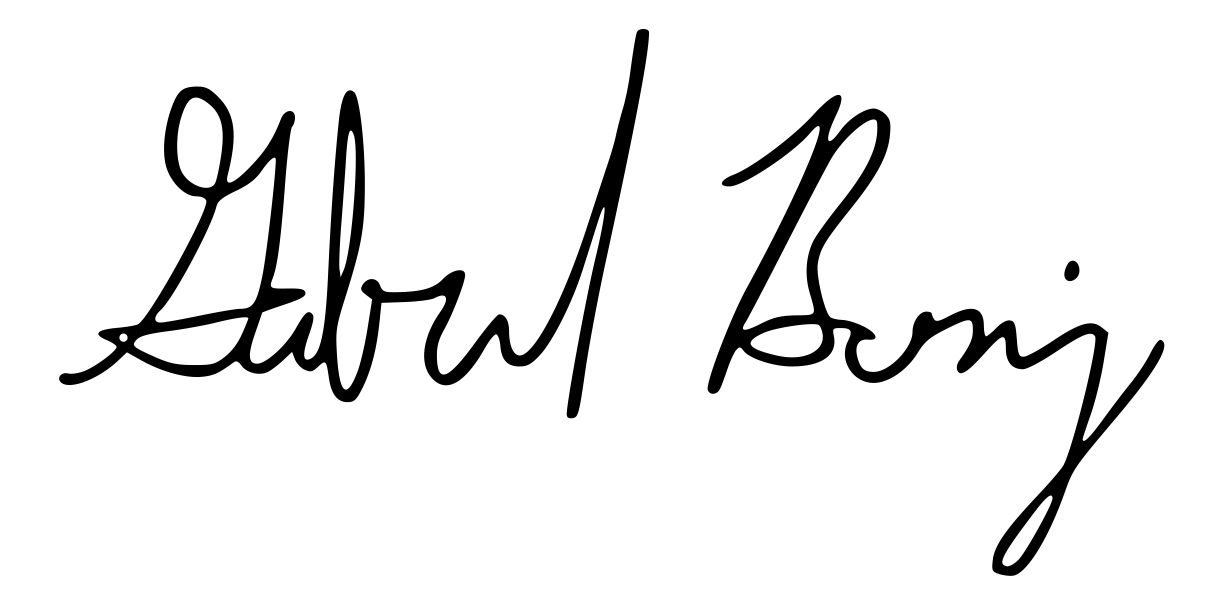 Gabriel Boric